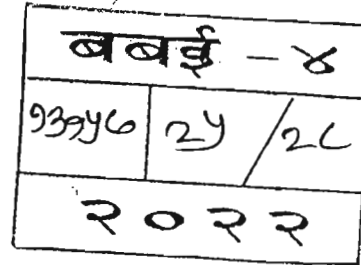 बबई - ४
१३१५७ २५ / २८
२०२२